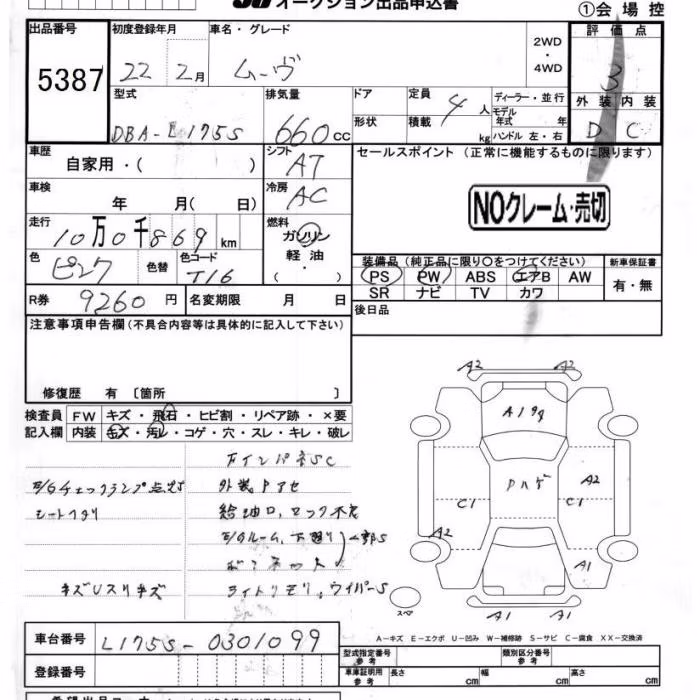 オークション出品申込書
①会場控
出品番号
5387
初度登録年月
22 2月
車名・グレード
ムーヴ
2WD
・
4WD
評価点
3
外装 内装
D C
型式
DBA-L175S
排気量
660cc
ドア
形状
定員
4人
積載
kg
ディーラー・並行
モデル
年式 年
ハンドル 左・右
車歴
自家用・( )
シフト
AT
セールスポイント (正常に機能するものに限ります)
NOクレーム・売切
車検
年 月( 日)
冷房
AC
走行
10万0千869km
燃料
ガソリン
軽油
( )
色
ピンク
色替
色コード
T16
装備品 (純正品に限り○をつけてください)
PS PW ABS エアB AW
SR ナビ TV カワ
新車保証書
有・無
R券 9260円
名変期限 月 日
後日品
注意事項申告欄(不具合内容等は具体的に記入して下さい)
修復歴 有〔箇所 〕
検査員
記入欄
FW キズ・飛石・ヒビ割・リペア跡・×要
内装 キズ・汚レ・コゲ・穴・スレ・キレ・破レ
E/Gチェックランプ点灯
シートヘタリ
キズUスリキズ
外装
給油口、ロック不良
E/Gルーム、下廻り
一部S
ライトリモリ、ワイパーS
A2 A2
A2
C1 C1
A2
A1
A1 A1
スペア
A-キズ E-エクボ U-凹み W-補修跡 S-サビ C-腐食 XX-交換済
車台番号
L175S-0301099
登録番号
型式指定番号
参考
類別区分番号
参考
車庫証明用
参考
長さ cm
幅 cm
高さ cm